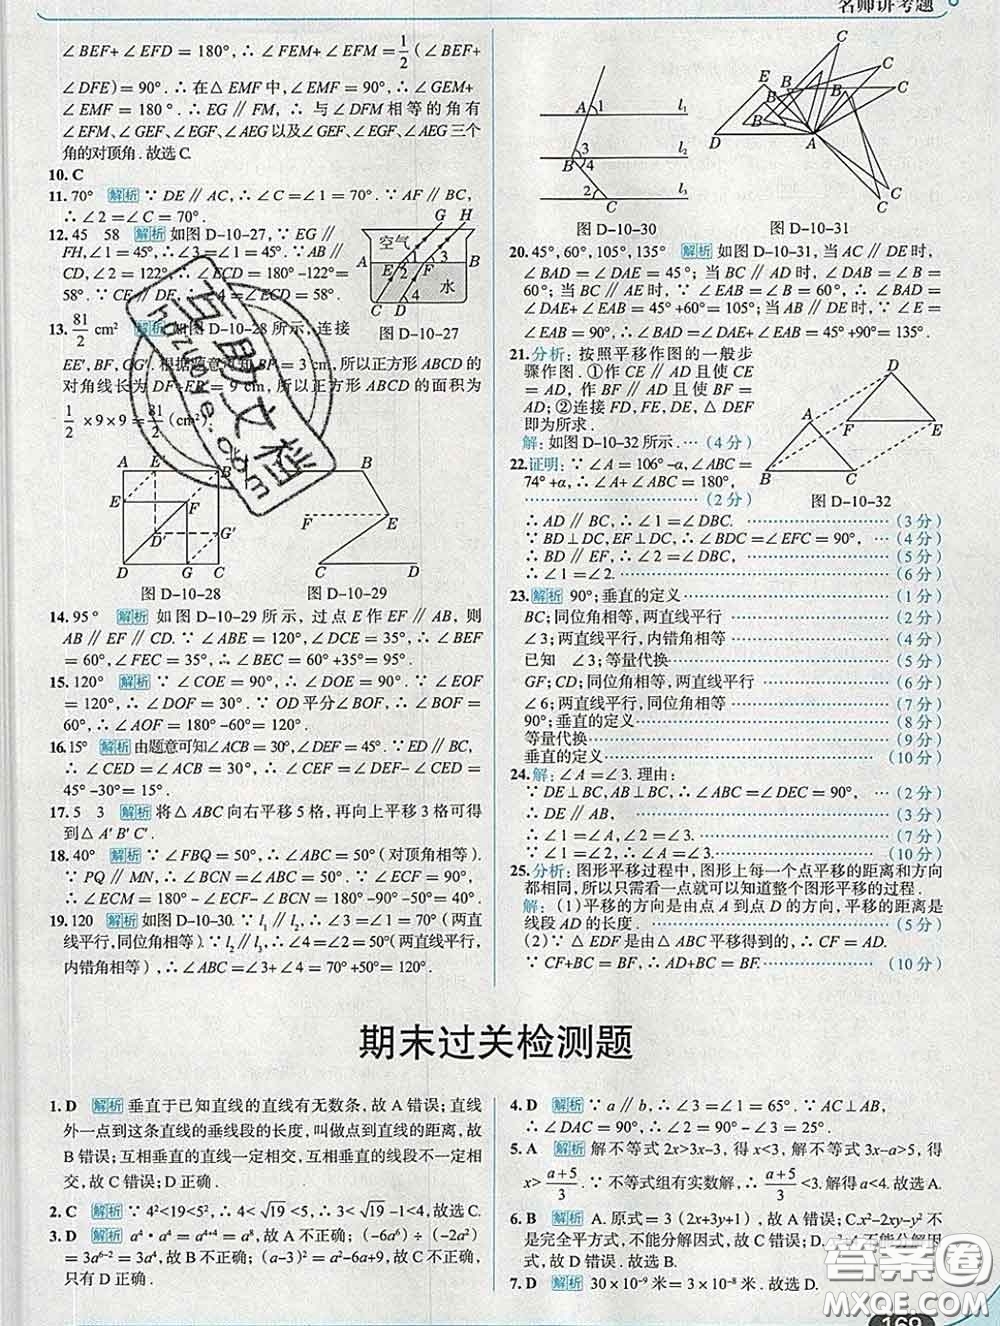 名师讲考题
∠BEF+∠EFD=180°,∴∠FEM+∠EFM=1/2(∠BEF+
∠DFE)=90°.∴在△EMF中,∠EMF=90°.∴∠GEM+
∠EMF=180°.∴EG∥FM,∴与∠DFM相等的角有
∠EFM,∠GEF,∠EGF,∠AEG以及∠GEF、∠EGF、∠AEG三个
角的对顶角.故选C.
10. C
11. 70° 解析 ∵DE∥AC,∴∠C=∠1=70°.∵AF∥BC,
∴∠2=∠C=70°.
12. 45 58 解析 如图D-10-27,∵EG∥
FH,∠1=45°,∴∠3=∠1=45°.∵AB∥
CD,∠2=122°,∴∠ECD=180°-122°=
58°.∵CE∥DF,∴∠4=∠ECD=58°.
G H
空气
A 1 3 B
E 2 F
水
4
C D
图 D-10-27
13. 81/2 cm² 解析 如图D-10-28所示,连接
EE′,BF,GG′.根据题意可知BF=3 cm,所以正方形ABCD的
对角线长为DF+BF=9 cm,所以正方形ABCD的面积为
1/2×9×9=81/2(cm²).
A E′ B
E F
D′ G′
D G C
图 D-10-28
A B
F E
C D
图 D-10-29
14. 95° 解析 如图D-10-29所示,过点E作EF∥AB,则
AB∥EF∥CD.∵∠ABE=120°,∠DCE=35°,∴∠BEF
=60°,∠FEC=35°,∴∠BEC=60°+35°=95°.
15. 120° 解析 ∵∠COE=90°,∴∠DOE=90°.∵∠EOF
=120°,∴∠DOF=30°.∵OD平分∠BOF,∴∠BOF
=60°,∴∠AOF=180°-60°=120°.
16. 15° 解析 由题意可知∠ACB=30°,∠DEF=45°.∵ED∥BC,
∴∠CED=∠ACB=30°,∴∠CEF=∠DEF-∠CED=
45°-30°=15°.
17. 5 3 解析 将△ABC向右平移5格,再向上平移3格可得
到△A′B′C′.
18. 40° 解析 ∵∠FBQ=50°,∴∠ABC=50°(对顶角相等).
∵PQ∥MN,∴∠BCN=∠ABC=50°.∵∠ECF=90°,
∴∠ECM=180°-∠ECF-∠BCN=180°-90°-50°=40°.
19. 120 解析 如图D-10-30.∵l₁∥l₃,∴∠3=∠1=70°(两直
线平行,同位角相等).∵l₂∥l₃,∴∠4=∠2=50°(两直线平行,
内错角相等),∴∠ABC=∠3+∠4=70°+50°=120°.
A 1 l₁
3 l₂
B 4
2 l₃
C
图 D-10-30
E B C
D A
图 D-10-31
20. 45°,60°,105°,135° 解析 如图D-10-31,当AC∥DE时,
∠BAD=∠DAE=45°;当BC∥AD时,∠DAB=∠B=
60°;当BC∥AE时,∵∠EAB=∠B=60°,∴∠BAD=
∠DAE+∠EAB=45°+60°=105°;当AB∥DE时,∵∠E=
∠EAB=90°,∴∠BAD=∠DAE+∠EAB=45°+90°=135°.
21. 分析:按照平移作图的一般步
骤作图.①作CE∥AD且使CE
=AD,作BF∥AD且使BF=
AD;②连接FD,FE,DE,△DEF
即为所求.
解:如图D-10-32所示.…(4分)
D
A F E
B C
图 D-10-32
22. 证明:∵∠A=106°-α,∠ABC=
74°+α,∴∠A+∠ABC=180°.
(2分)
∴AD∥BC,∴∠1=∠DBC. (3分)
∵BD⊥DC,EF⊥DC,∴∠BDC=∠EFC=90°, (4分)
∴BD∥EF,∴∠2=∠DBC, (5分)
∴∠1=∠2. (6分)
23. 解析 90°;垂直的定义 (1分)
BC;同位角相等,两直线平行 (2分)
∠3;两直线平行,内错角相等 (4分)
已知 ∠3;等量代换 (5分)
GF;CD;同位角相等,两直线平行 (6分)
∠6;两直线平行,同位角相等 (7分)
90°;垂直的定义 (8分)
等量代换 (9分)
垂直的定义 (10分)
24. 解:∠A=∠3.理由:
∵DE⊥BC,AB⊥BC,∴∠ABC=∠DEC=90°, (2分)
∴DE∥AB, (3分)
∴∠1=∠A,∠2=∠3. (7分)
∵∠1=∠2,∴∠A=∠3. (10分)
25. 分析:图形平移过程中,图形上每一个点平移的距离和方向
都相同,所以只需看一点就可以知道整个图形平移的过程.
解:(1)平移的方向是由点A到点D的方向,平移的距离是
线段AD的长度. (5分)
(2)∵△EDF是由△ABC平移得到的,∴CF=AD.
∵CF+BC=BF,∴AD+BC=BF. (10分)
期末过关检测题
1. D 解析 垂直于已知直线的直线有无数条,故A错误;直线
外一点到这条直线的垂线段的长度,叫做点到直线的距离,故
B错误;互相垂直的直线一定相交,互相垂直的线段不一定相
交,故C错误;D正确.
2. C 解析 ∵4²<19<5²,∴4<√19<5,∴3<√19-1<4,故选C.
3. D 解析 a⁴·a⁴=a⁴⁺⁴=a⁸,故A不正确;(-6a⁶)÷(-2a²)
=3a⁶⁻²=3a⁴,故B不正确;(a-3)²=a²-6a+9,故C不正确,
只有D正确.
4. D 解析 ∵a∥b,∴∠ACB=∠1=65°.∵AC⊥AB,
∴∠DAC=90°.∴∠2=90°-∠1=25°.
5. A 解析 解不等式2x>3x-3,得x<3,解不等式3x-a>5,得
x>(a+5)/3.∵不等式组有实数解,∴(a+5)/3<3.解得a<4.故选A.
6. B 解析 A.原式=3(2x+3y+1),故A错误;C.x²-2xy-y²不
是完全平方式,不能分解因式,故C错误;D.不能分解因
式,故D错误.故选B.
7. D 解析 30×10⁻⁹米=3×10⁻⁸米.故选D.
互助文档
hdzuoye.com
答案圈
MXQE.COM
169